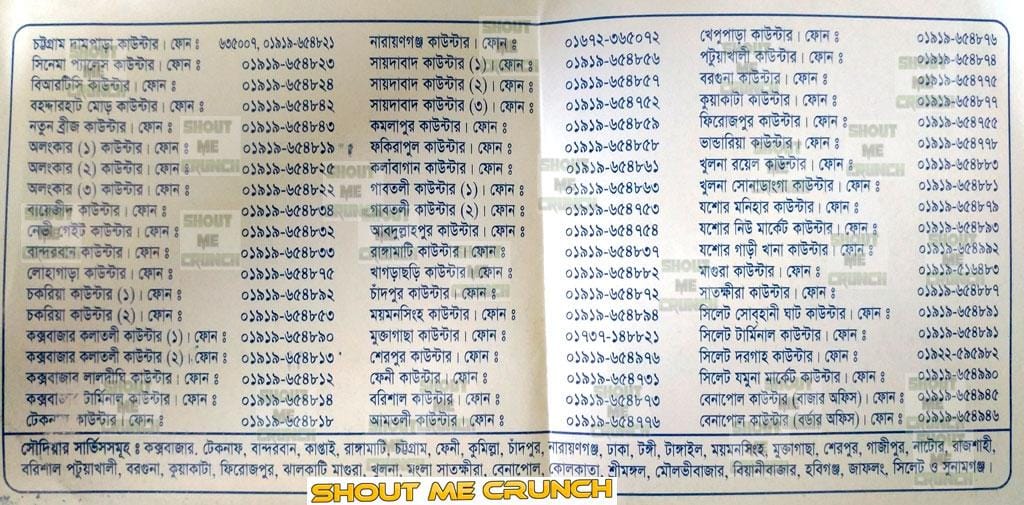 চট্টগ্রাম দামপাড়া কাউন্টার। ফোন ঃ ৬৩৫০০৭, ০১৯১৯-৬৫৪৮২১
সিনেমা প্যালেস কাউন্টার। ফোন ঃ ০১৯১৯-৬৫৪৮২৩
বিআরটিসি কাউন্টার। ফোন ঃ ০১৯১৯-৬৫৪৮২৪
বহদ্দারহাট মোড় কাউন্টার। ফোন ঃ ০১৯১৯-৬৫৪৮৪২
নতুন ব্রীজ কাউন্টার। ফোন ঃ ০১৯১৯-৬৫৪৮৪৩
অলংকার (১) কাউন্টার। ফোন ঃ ০১৯১৯-৬৫৪৮১৯
অলংকার (২) কাউন্টার। ফোন ঃ ০১৯১৯-৬৫৪৮২৫
অলংকার (৩) কাউন্টার। ফোন ঃ ০১৯১৯-৬৫৪৮২২
বায়েজীদ কাউন্টার। ফোন ঃ ০১৯১৯-৬৫৪৮৩৪
নেভী গেইট কাউন্টার। ফোন ঃ ০১৯১৯-৬৫৪৮৩২
বান্দরবান কাউন্টার। ফোন ঃ ০১৯১৯-৬৫৪৮৩৩
লোহাগাড়া কাউন্টার। ফোন ঃ ০১৯১৯-৬৫৪৮৭৫
চকরিয়া কাউন্টার (১)। ফোন ঃ ০১৯১৯-৬৫৪৮৯২
চকরিয়া কাউন্টার (২)। ফোন ঃ ০১৯১৯-৬৫৪৮৫৩
কক্সবাজার কলাতলী কাউন্টার (১)। ফোন ঃ ০১৯১৯-৬৫৪৮৯০
কক্সবাজার কলাতলী কাউন্টার (২)। ফোন ঃ ০১৯১৯-৬৫৪৮১৩
কক্সবাজার লালদীঘি কাউন্টার। ফোন ঃ ০১৯১৯-৬৫৪৮১২
কক্সবাজার টার্মিনাল কাউন্টার। ফোন ঃ ০১৯১৯-৬৫৪৮১৪
কাউন্টার। ফোন ঃ ০১৯১৯-৬৫৪৮১৮
নারায়ণগঞ্জ কাউন্টার। ফোন ঃ ০১৬৭২-৩৬৫০৭২
সায়দাবাদ কাউন্টার (১)। ফোন ঃ ০১৯১৯-৬৫৪৮৫৬
সায়দাবাদ কাউন্টার (২)। ফোন ঃ ০১৯১৯-৬৫৪৮৫৭
সায়দাবাদ কাউন্টার (৩)। ফোন ঃ ০১৯১৯-৬৫৪৭৫২
কমলাপুর কাউন্টার। ফোন ঃ ০১৯১৯-৬৫৪৮৫৯
ফকিরাপুল কাউন্টার। ফোন ঃ ০১৯১৯-৬৫৪৮৫৮
কলাবাগান কাউন্টার। ফোন ঃ ০১৯১৯-৬৫৪৮৬১
গাবতলী কাউন্টার (১)। ফোন ঃ ০১৯১৯-৬৫৪৮৬৩
গাবতলী কাউন্টার (২)। ফোন ঃ ০১৯১৯-৬৫৪৭৫৩
আবদুল্লাহপুর কাউন্টার। ফোন ঃ ০১৯১৯-৬৫৪৭৫৪
রাঙ্গামাটি কাউন্টার। ফোন ঃ ০১৯১৯-৬৫৪৮৩৭
খাগড়াছড়ি কাউন্টার। ফোন ঃ ০১৯১৯-৬৫৪৮৮২
চাঁদপুর কাউন্টার। ফোন ঃ ০১৯১৯-৬৫৪৮৭২
ময়মনসিংহ কাউন্টার। ফোন ঃ ০১৯১৯-৬৫৪৮৯৪
মুক্তাগাছা কাউন্টার। ফোন ঃ ০১৭৩৭-১৮৮২১
শেরপুর কাউন্টার। ফোন ঃ ০১৯১৯-৬৫৪৯৭৬
ফেনী কাউন্টার। ফোন ঃ ০১৯১৯-৬৫৪৭৩১
বরিশাল কাউন্টার। ফোন ঃ ০১৯১৯-৬৫৪৮৭৩
আমতলী কাউন্টার। ফোন ঃ ০১৯১৯-৬৫৪৭৭৬
খেপুপাড়া কাউন্টার। ফোন ঃ ০১৯১৯-৬৫৪৮৭৬
পটুয়াখালী কাউন্টার। ফোন ঃ ০১৯১৯-৬৫৪৮৭৪
বরগুনা কাউন্টার। ফোন ঃ ০১৯১৯-৬৫৪৭৭৫
কুয়াকাটা কাউন্টার। ফোন ঃ ০১৯১৯-৬৫৪৮৭৭
ফিরোজপুর কাউন্টার। ফোন ঃ ০১৯১৯-৬৫৪৭৫৫
ভান্ডারিয়া কাউন্টার। ফোন ঃ ০১৯১৯-৬৫৪৭৭৮
খুলনা রয়েল কাউন্টার। ফোন ঃ ০১৯১৯-৬৫৪৮৮৩
খুলনা সোনাডাংগা কাউন্টার। ফোন ঃ ০১৯১৯-৬৫৪৮৮১
যশোর মনিহার কাউন্টার। ফোন ঃ ০১৯১৯-৬৫৪৮৭৯
যশোর নিউ মার্কেট কাউন্টার। ফোন ঃ ০১৯১৯-৬৫৪৮৯৩
যশোর গাড়ী খানা কাউন্টার। ফোন ঃ ০১৯১৯-৬৫৪৯৯২
মাগুরা কাউন্টার। ফোন ঃ ০১৯১৯-৫১৬৪৮৩
সাতক্ষীরা কাউন্টার। ফোন ঃ ০১৯১৯-৬৫৪৮৮৭
সিলেট সোবহানী ঘাট কাউন্টার। ফোন ঃ ০১৯১৯-৬৫৪৮৯১
সিলেট টার্মিনাল কাউন্টার। ফোন ঃ ০১৯১৯-৬৫৪৮৯১
সিলেট দরগাহ কাউন্টার। ফোন ঃ ০১৯২২-৫৯৫৯৮২
সিলেট যমুনা মার্কেট কাউন্টার। ফোন ঃ ০১৯১৯-৬৫৪৯৯০
বেনাপোল কাউন্টার (বাজার অফিস)। ফোন ঃ ০১৯১৯-৬৫৪৯৪৫
বেনাপোল কাউন্টার (বর্ডার অফিস)। ফোন ঃ ০১৯১৯-৬৫৪৯৪৬
সৌদিয়ার সার্ভিসসমূহ ঃ কক্সবাজার, টেকনাফ, বান্দরবান, কাপ্তাই, রাঙ্গামাটি, চট্টগ্রাম, ফেনী, কুমিল্লা, চাঁদপুর, নারায়ণগঞ্জ, ঢাকা, টঙ্গী, টাঙ্গাইল, ময়মনসিংহ, মুক্তাগাছা, শেরপুর, গাজীপুর, নাটোর, রাজশাহী,
বরিশাল পটুয়াখালী, বরগুনা, কুয়াকাটা, ফিরোজপুর, ঝালকাটি মাগুরা, খুলনা, মংলা সাতক্ষীরা, বেনাপোল, কোলকাতা, শ্রীমঙ্গল, মৌলভীবাজার, বিয়ানীবাজার, হবিগঞ্জ, জাফলং, সিলেট ও সুনামগঞ্জ।
SHOUT ME CRUNCH